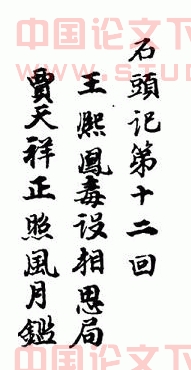 中国论文下
石頭記第十二回
王熙鳳毒设相思局
賈天祥正照風月鑑
中国论文下